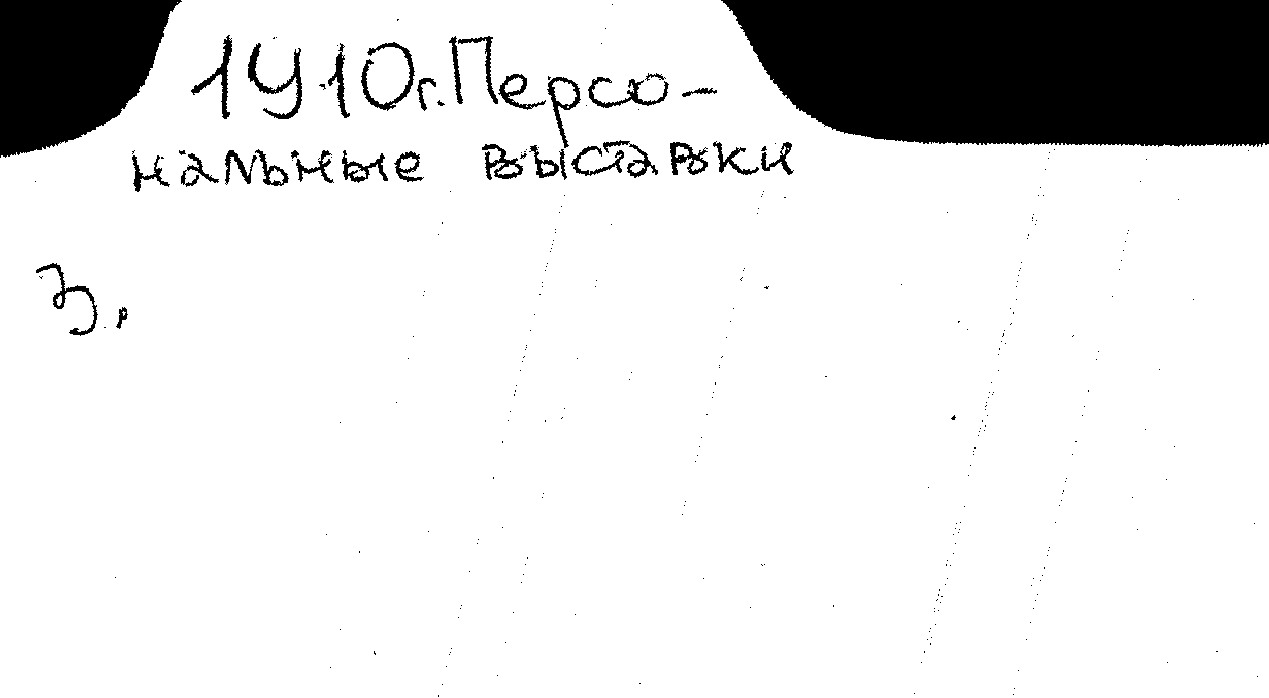 1910г. Персо-
нальные выставки
3.